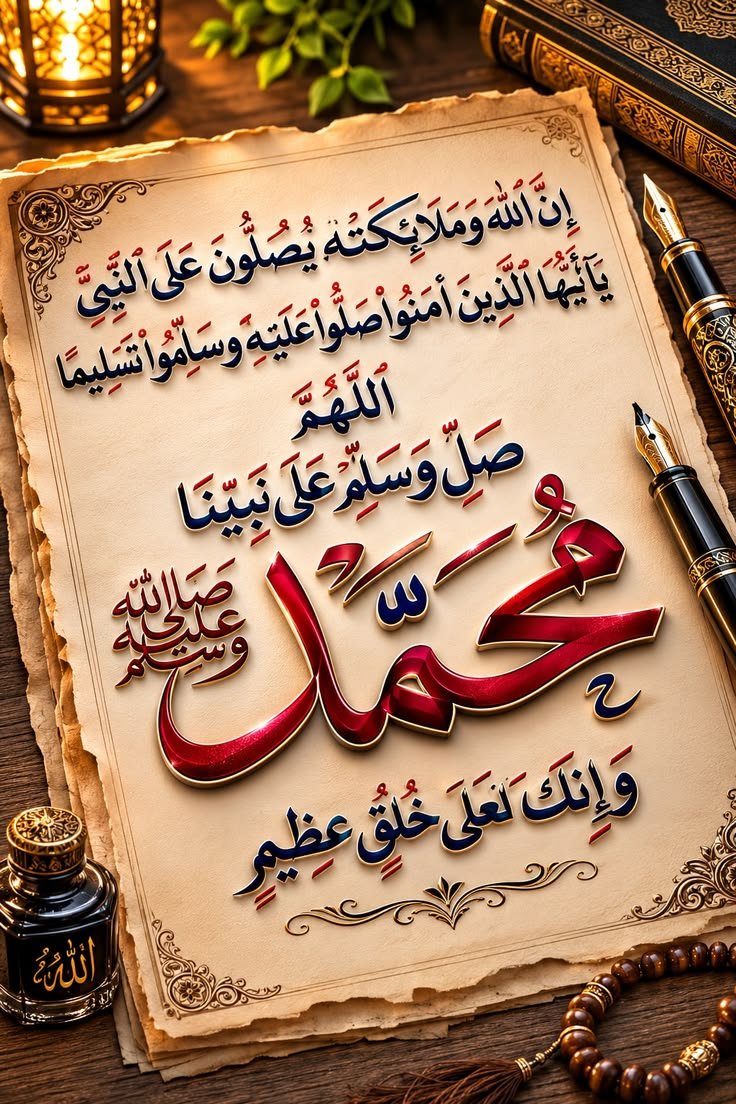 إِنَّ اللهَ وَمَلَائِكَتَهُ يُصَلُّونَ عَلَى النَّبِيِّ
يَا أَيُّهَا الَّذِينَ أمَنُوا صَلُّوا عَلَيْهِ وَسَلِّمُوا تَسْلِيمًا
اَللَّهُمَّ
صَلِّ وَسَلِّمْ عَلَى نَبِيِّنَا
مُحَمَّد
صَلَّى اللهُ عَلَيْهِ وَسَلَّمَ
وَإِنَّكَ لَعَلَى خُلُقٍ عَظِيمٍ
الله